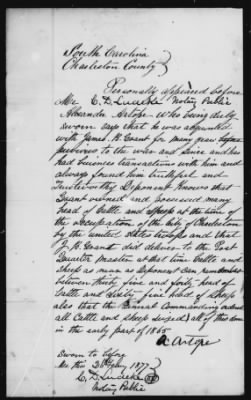 South Carolina
Charleston County
Personally appeared before
Me C. D. Ludeke Notary Public
Alexander Artope who being duly
sworn says that he was acquainted
with James H. Grant for many years
previous to the war and since and he
had business transactions with him and
always found him truthful and
Trustworthy Deponent Knows that
Grant owned and possessed many
head of Cattle and Sheep at the time of
the occupation of the City of Charleston
by the united States troops and that
J. H. Grant did deliver to the Post
Quarter Master at that time Cattle and
Sheep as near as deponent can remember
between thirty five and forty head of
Cattle and Sixty five head of Sheep
also that the General Commanding ordered
all Cattle and Sheep seized, all of this done
in the early part of 1865
A Artope
Sworn to before
Me this 3d day 1877
C. D. Ludeke
Notary Public